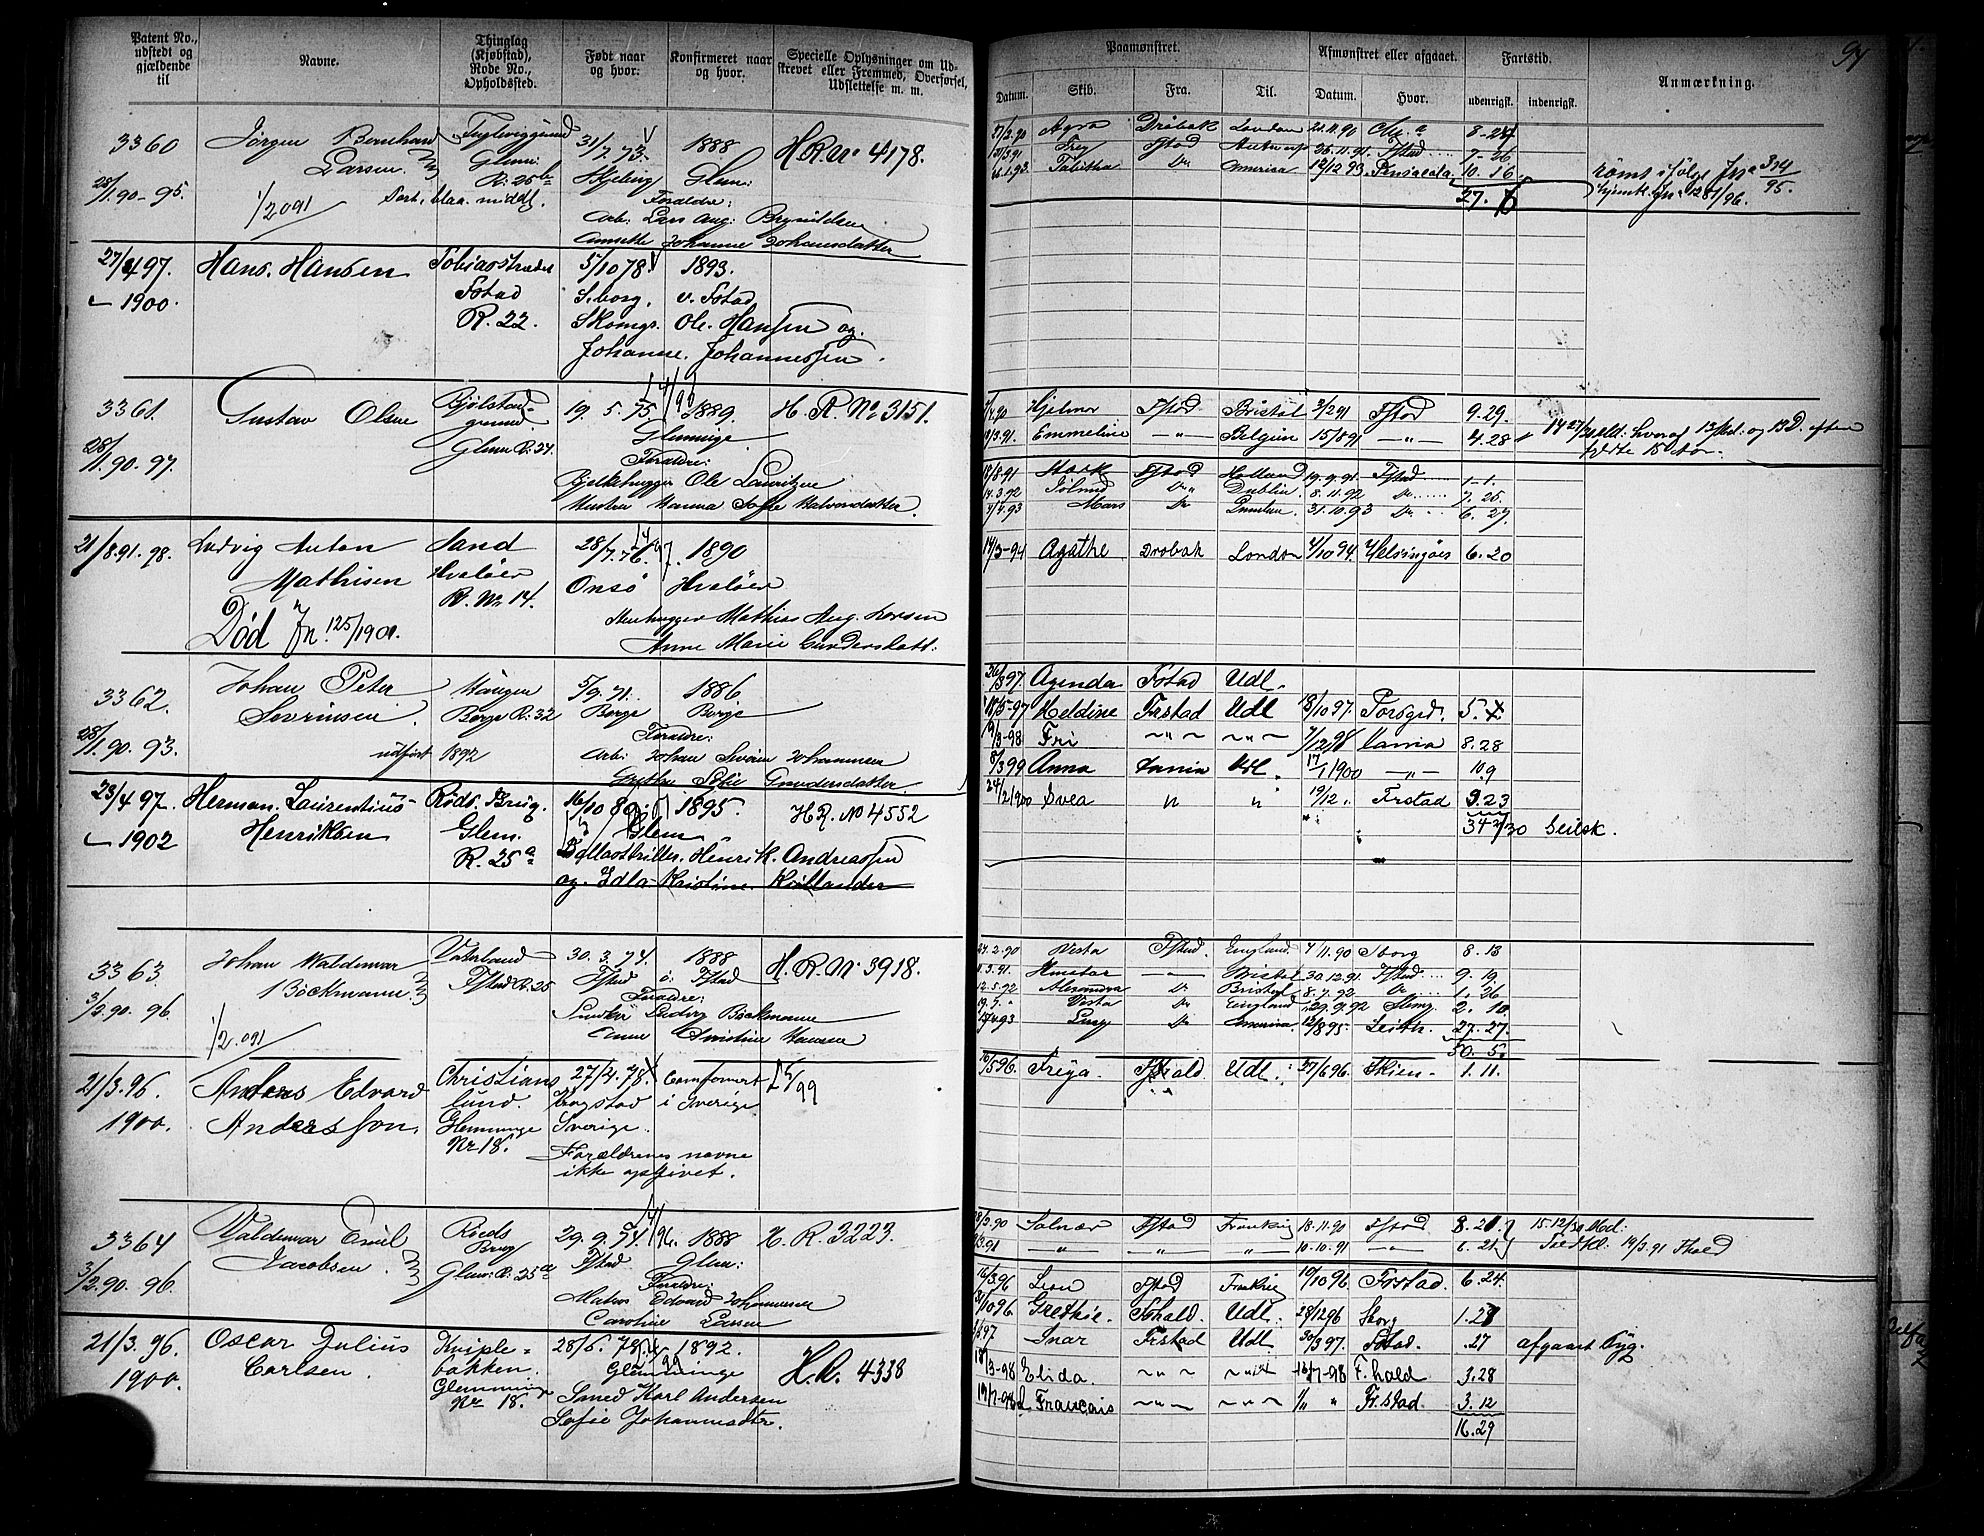 Patent No., udstedt og gjældende til
Navne.
Thinglag (Kjøbstad), Rode No., Opholdssted.
Født naar og hvor.
Konfirmeret naar og hvor.
Specielle Oplysninger om Udskrevet eller Fremmed, Overførsel, Udslettelse m. m.
Paamønstret.
Afmønstret eller afgaaet.
Fartstid.
Anmærkning.
94
Datum. Skib. Fra. Til. Datum. Hvor. udenrigsk. indenrigsk.
3360 Jørgen Bernhard Larsen
28/1.90-95.
1/2091
Glem: R: 25b
31/7.73. 1888 H.R. No 4178.
Glem:
Forældre:
Arb: Lars Aug: Brynildsen
Annette Johanne Johansdatter
27/2.90 Agra Drøbak London 20.11.90 8-24
Fstad Antwerp 26.11.91. Fstad 7-26
26.1.93. Tabitha Do America 12/12 93 Pensacola 10.16
27. 6
rømt ifølge Jn 324/95.
hjemk. Jn: 1281/96.
27/4 97.
1900.
Hans. Hansen
Tobiasstrædet Fstad R. 22.
5/10 78. 1893.
S.borg. v. Fstad
Skomgr. Ole. Hansen og.
Johanne. Johannessen.
3361. Gustav Olsen
28/1.90.97.
Bjølstadgrund Glem R: 24
19. 5. 75. 1889. H. R No 3151.
14/99
Glemminge
Forældre:
Bjelkehugger Ole Lauritzen
Hustru Hanna Sofie Halvorsdatter.
Hjelmar Fstad Bristol 3/2 91 Fstad 9.29.
18/3.91. Emmeline —„— Belgien 15/8 91 —„— 4.28
14 27/30 Md: hvoraf 13 Md: og 13 D. efter fyldte 15 Aar.
18/8.91 Stærk Fstad Holland 19.9.91. Fstad 1-1.
14.3.92 Do Dublin. 8.11.92 Do 7. 25.
4/4.93 Mars Do 31.10.93 Do 6. 27.
21/8.91.98. Ludvig Anton Mathisen
Død Jn. 125/1901.
Sand Hvaløer R. No 14.
28/7.76. 1890
Onsø Hvaløer
Stenhugger Mathias Aug. Larsen
Anne Marie Gundersdatt.
14/3-94 Agathe Drøbak London 4/10 94. Helsingöes 6.20
3362. Johan Peter Sevrinsen
28/1.90.93.
udført 1892
Borge R: 32
5/9.71. 1886
Borge Borge
Forældre:
Arb: Johan Sevrin Johannesen
Grethe Sofie Gundersdatter.
26/3 97. Agenda Fstad Udl.
18/5-97 Heldine Frstad Udl 13/10 97. Porsgrd. 5.
19/3-98 Fri —„— —„— 7/12 98 Vania 8.28
8/3 99 Anna Vania Udl. 17/1 1900 —„— 10.9
24/2 1900 Svea „ „ 19/12 „ Frstad 9.23
34 21/30 Seilsk.
23/4 97.
1902
Herman. Laurentius Henriksen
Røds. Brug. Glem. R. 25a
16/10 80 1895. H.R. No 4552
Glem
Ballastskiller. Henrik. Andreassen
og. Edla Kristine Kjellander
3363. Johan Waldemar Böckmann
3/2.90 96.
1/2 091
Vaterland Fstad R: 25
30. 3. 74. 1888 H.R. No 3918.
Fstad i Fstad
Forældre:
Snedker Ludvig Böckmann
Anne Christine Hansen
24.2.90 Vesta Fstad. England 4/11.90 Sborg 8. 13
—„— Bristol 30.12.91. Fstad 9. 19.
12.5.92 Alexandra Do Bristol 8.7.92 Do 1. 26
19.7. „ Vesta Do England 29.9.92 2. 10
Do America 12/8 95. Leith. 27.27
50. 5.
21/3.96. 1900. Anders Edvard Andersson.
Christianslund. Glemminge Nr 18.
27/4.78. Comfomert i Sverige
Bogstad Sverige.
5/99
Forældrenes navne ikke opgivet.
16/5 96. Freya. Fhald. Udl. 27/6 96. Skien. 1. 11.
3364 Valdemar Emil Jacobsen
3/2.90. 96.
Røeds Brug Glem: R: 25a
29. 9. 74 1888. H. R. 3223.
Fstad Glem:
Forældre:
Matros Edvard Johannesen
Caroline Larsen
Solnær Fstad Frankrig 18.11.90 Fstad 8.21.
—„— „ —„— 10.10.91 —„— 6.21
15.12/30 Md:
Tidtkl: 19/3.91 Fhald
16/3 96 Leon Fstad Frankrig 10/10 96. Frstad. 6.24.
31/10 96. Grethie. Fhald. Udl. 28/12 96 Sborg 1.28
Snar Frstad Udl. 30/3 97. Fstad. .27 afgaaet Syg.
18/3-98 Elida. „ „ 16/7-98 F.hald 3.28
19/7-98 L. Francais —„— —„— 1/11 „ Fr.stad. 3.12
16.29
21/3. 96. 1900. Oscar Julius Carlsen.
Kniplebakken. Glemminge Nr 18.
28/6. 78. 1892. H.R. 4338
Glemminge
Smed Karl Andersen
Sofie Johannesdtr.